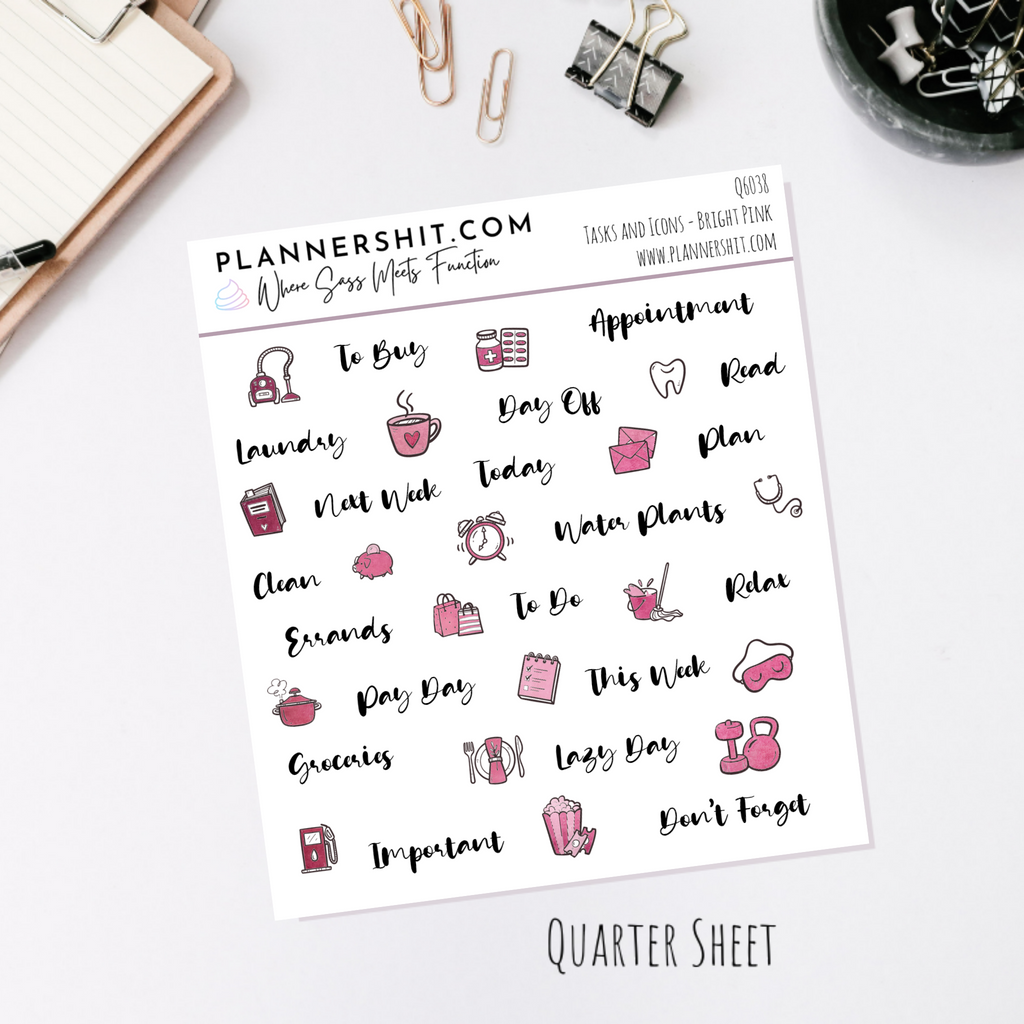 PLANNERSHIT.COM
Where Sass Meets Function
Q6038
Tasks and Icons - Bright Pink
www.plannershit.com
To Buy
Appointment
Laundry
Day Off
Read
Next Week
Today
Plan
Clean
Water Plants
Errands
To Do
Relax
Pay Day
This Week
Groceries
Lazy Day
Important
Don't Forget
Quarter Sheet